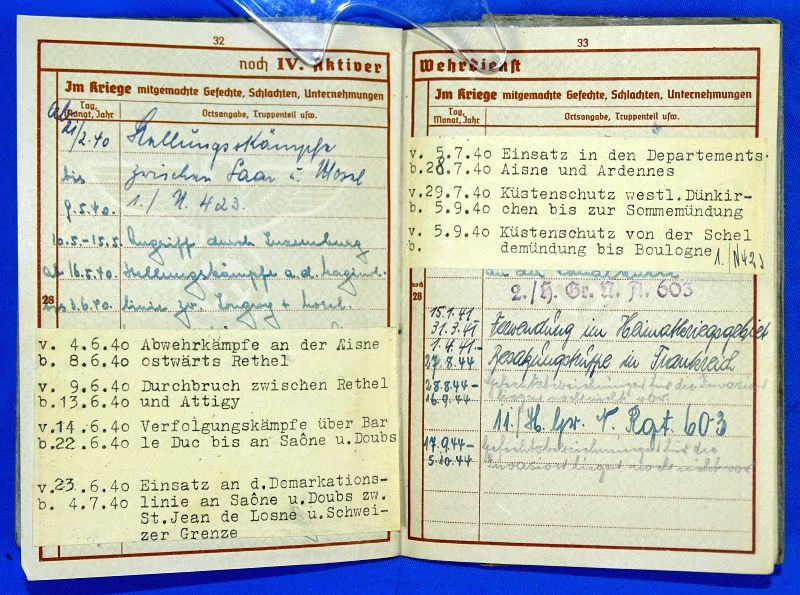 32
noch IV. Aktiver
Im Kriege mitgemachte Gefechte, Schlachten, Unternehmungen
Tag, Monat, Jahr
Ortsangabe, Truppenteil usw.
ab 21/2.40 Stellungskämpfe
bis zwischen Saar u. Mosel
9.5.40. 1./N. 423.
10.5-15.5 Angriffe durch Luxemburg
ab 16.5.40 Stellungskämpfe a.d.
28
bis 3.6.40 linie zw.
v. 4.6.40 Abwehrkämpfe an der Aisne
b. 8.6.40 ostwärts Rethel
v. 9.6.40 Durchbruch zwischen Rethel
b.13.6.40 und Attigy
v.14.6.40 Verfolgungskämpfe über Bar
b.22.6.40 le Duc bis an Saône u.Doubs
v.23.6.40 Einsatz an d.Demarkations-
b. 4.7.40 linie an Saône u.Doubs zw.
St.Jean de Losne u.Schwei-
zer Grenze
33
Wehrdienst
Im Kriege mitgemachte Gefechte, Schlachten, Unternehmungen
Tag, Monat, Jahr
Ortsangabe, Truppenteil usw.
v. 5.7.40 Einsatz in den Departements
b.28.7.40 Aisne und Ardennes
v.29.7.40 Küstenschutz westl.Dünkir-
b. 5.9.40 chen bis zur Sommemündung
v. 5.9.40 Küstenschutz von der Schel
b. demündung bis Boulogne 1./N423
noch 28
2./H. Gr. N. R. 603
15.1.41
31.3.41 Verwendung im Heimatkriegsgebiet
1.4.41-
27.8.44 Besatzungstruppe in Frankreich
28.8.44- Gefechtsbezeichnungen für die Invasion
16.9.44 liegen noch nicht vor.
11./H. Rgt. 603
17.9.44- Gefechtsbezeichnungen für die
5.10.44 Invasion liegen noch nicht vor